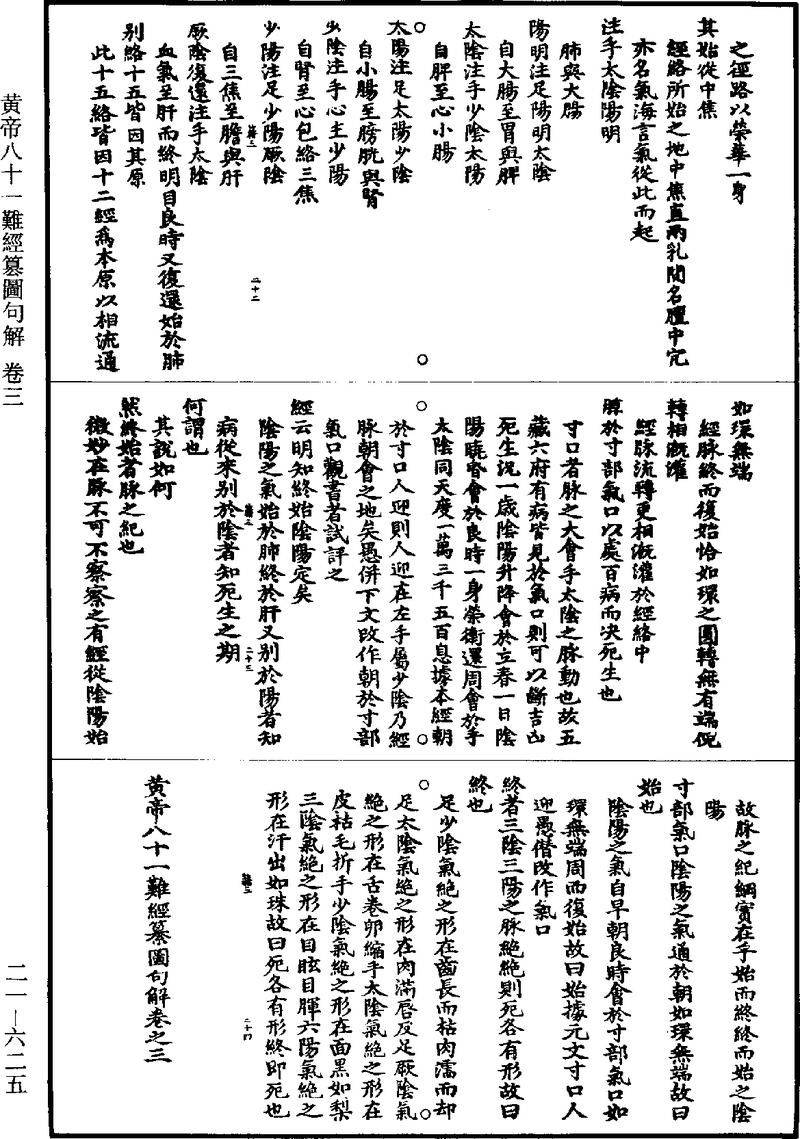 黃帝八十一難經纂圖句解 卷三
二一—六二五
之徑路以榮華一身
其始從中焦
經絡所始之地中焦直兩乳間名膻中穴
亦名氣海言氣從此而起
注手太陰陽明
肺與大腸
陽明注足陽明太陰
自大腸至胃與脾
太陰注手少陰太陽
自脾至心小腸
太陽注足太陽少陰
自小腸至膀胱與腎
少陰注手心主少陽
自腎至心包絡三焦
少陽注足少陽厥陰
自三焦至膽與肝
厥陰復還注手太陰
血氣至肝而終明日良時又復還始於肺
別絡十五皆因其原
此十五絡皆因十二經為本原以相流通
二十二
如環無端
經脉終而復始恰如環之圓轉無有端倪
轉相溉灌
經脉流轉更相溉灌於經絡中
朝於寸部氣口以處百病而决死生也
寸口者脉之大會手太陰之脉動也故五
藏六府有病皆見於氣口則可以斷吉凶
死生況一歲陰陽升降會於立春一日陰
陽曉昏會於良時一身榮衛還周會於手
太陰同天度一萬三千五百息據本經朝
於寸口人迎則人迎在左手屬少陰乃經
脉朝會之地矣愚併下文改作朝於寸部
氣口觀書者試評之
經云明知終始陰陽定矣
陰陽之氣始於肺終於肝又別於陽者知
病從來別於陰者知死生之期
二十三
何謂也
其說如何
然終始者脉之紀也
微妙在脉不可不察察之有經從陰陽始
故脉之紀綱實在乎始而終終而始之陰
陽
寸部氣口陰陽之氣通於朝如環無端故曰
始也
陰陽之氣自早朝良時會於寸部氣口如
環無端周而復始故曰始據元文寸口人
迎愚僭改作氣口
終者三陰三陽之脉絕絕則死各有形故曰
終也
足少陰氣絕之形在齒長而枯肉濡而却
足太陰氣絕之形在肉滿唇反足厥陰氣
絕之形在舌卷卵縮手太陰氣絕之形在
皮枯毛折手少陰氣絕之形在面黑如梨
三陰氣絕之形在目眩目暉六陽氣絕之
形在汗出如珠故曰死各有形終即死也
二十四
黃帝八十一難經纂圖句解卷之三